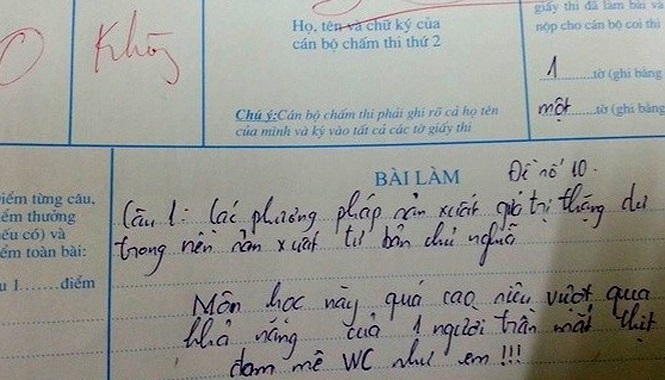 0
Không
Họ, tên và chữ ký của
cán bộ chấm thi thứ 2
Chú ý:Cán bộ chấm thi phải ghi rõ cả họ tên
của mình và ký vào tất cả các tờ giấy thi
giấy thi đã làm bài và
nộp cho cán bộ coi thi
1......tờ (ghi bằng
một......tờ (ghi bằng
BÀI LÀM
Đề số 10.
iểm từng câu,
iểm thưởng
ếu có) và
ểm toàn bài:
u 1......điểm
Câu 1: Các phương pháp sản xuất giá trị thặng dư
trong nền sản xuất tư bản chủ nghĩa
Môn học này quá cao siêu vượt qua
khả năng của 1 người trần mắt thịt
đam mê WC như em !!!